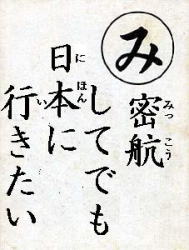 み
密航
してでも
日本に
行きたい
みっこう
にほん
い